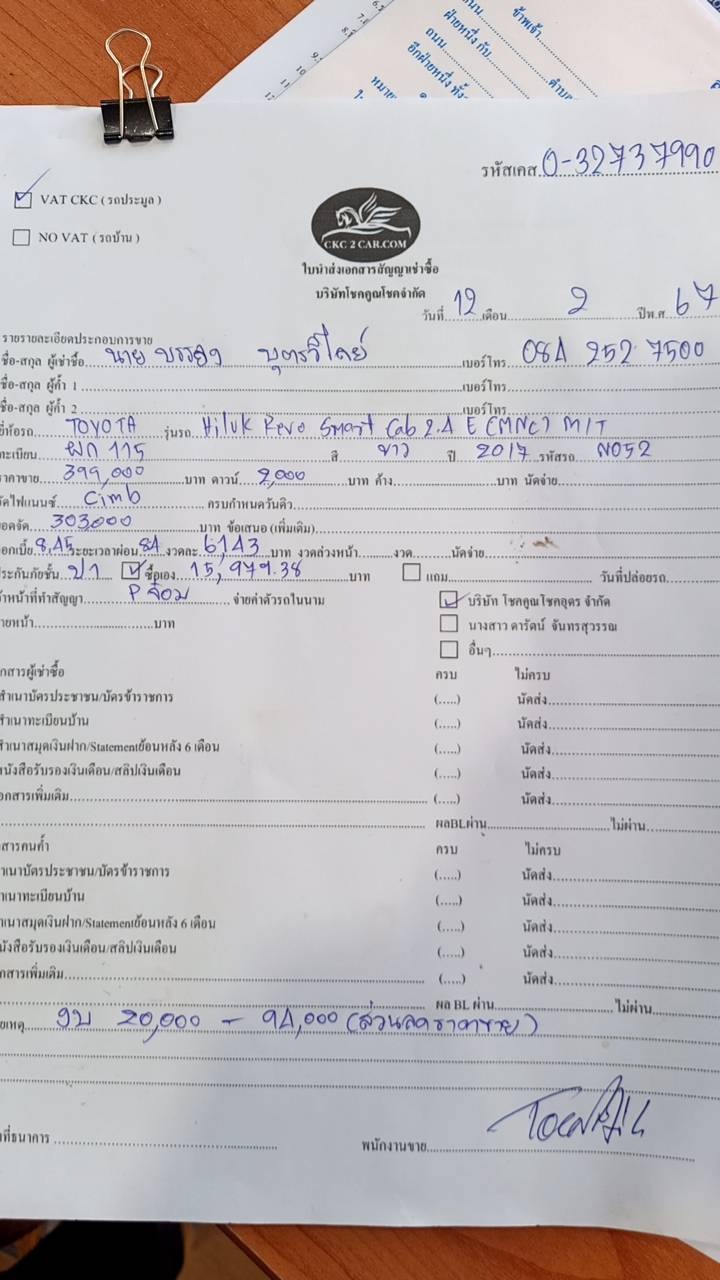 ข้าพเจ้า
ฝ่ายหนึ่ง กับ
ถนน
ตำบล
อีกฝ่ายหนึ่ง
รหัสเคส 0-32737990
VAT CKC ( รถประมูล )
NO VAT ( รถบ้าน )
CKC 2 CAR.COM
ใบนำส่งเอกสารสัญญาเช่าซื้อ
บริษัทโชคคูณโชคจำกัด
วันที่ 12 เดือน 2 ปีพ.ศ. 67
รายรายละเอียดประกอบการขาย
ชื่อ-สกุล ผู้เช่าซื้อ นาย บรรยง เบอร์โทร 084 252 7500
ชื่อ-สกุล ผู้ค้ำ 1 เบอร์โทร
ชื่อ-สกุล ผู้ค้ำ 2 เบอร์โทร
ยี่ห้อรถ TOYOTA รุ่นรถ Hilux Revo Smart Cab 2.4 E (MNC) M/T
ทะเบียน ผก 115 สี ขาว ปี 2017 รหัสรถ N052
ราคาขาย 399,000 บาท ดาวน์ 2,000 บาท ค้าง บาท นัดจ่าย
จัดไฟแนนซ์ Cimb ครบกำหนดวันคิว
ยอดจัด 303,000 บาท ข้อเสนอ (เพิ่มเติม)
ดอกเบี้ย 8.45 ระยะเวลาผ่อน 84 งวดละ 6,143 บาท งวดล่วงหน้า งวด นัดจ่าย
ประกันภัยชั้น ป1 ซื้อเอง 15,979.38 บาท แถม วันที่ปล่อยรถ
เจ้าหน้าที่ทำสัญญา P จ๋อม จ่ายค่าตัวรถในนาม บริษัท โชคคูณโชคอุดร จำกัด
นายหน้า บาท นางสาว ดารัตน์ จันทรสุวรรณ
อื่นๆ
เอกสารผู้เช่าซื้อ ครบ ไม่ครบ
สำเนาบัตรประชาชน/บัตรข้าราชการ (.....) นัดส่ง
สำเนาทะเบียนบ้าน (.....) นัดส่ง
สำเนาสมุดเงินฝาก/Statementย้อนหลัง 6 เดือน (.....) นัดส่ง
หนังสือรับรองเงินเดือน/สลิปเงินเดือน (.....) นัดส่ง
เอกสารเพิ่มเติม (.....) นัดส่ง
ผลBLผ่าน ไม่ผ่าน
เอกสารคนค้ำ ครบ ไม่ครบ
สำเนาบัตรประชาชน/บัตรข้าราชการ (.....) นัดส่ง
สำเนาทะเบียนบ้าน (.....) นัดส่ง
สำเนาสมุดเงินฝาก/Statementย้อนหลัง 6 เดือน (.....) นัดส่ง
หนังสือรับรองเงินเดือน/สลิปเงินเดือน (.....) นัดส่ง
เอกสารเพิ่มเติม (.....) นัดส่ง
ผล BL ผ่าน ไม่ผ่าน
หมายเหตุ งบ 20,000 - 94,000 (ส่วนลดราคาขาย)
เจ้าหน้าที่ธนาคาร พนักงานขาย